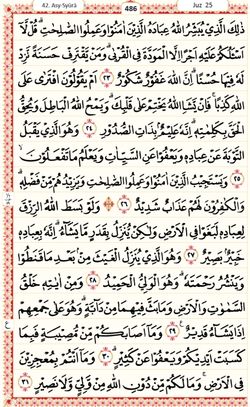 42. Asy-Syūrā 486 Juz 25
ذٰلِكَ الَّذِيْ يُبَشِّرُ اللّٰهُ عِبَادَهُ الَّذِيْنَ اٰمَنُوْا وَعَمِلُوا الصّٰلِحٰتِۗ قُلْ لَّآ
اَسْـَٔلُكُمْ عَلَيْهِ اَجْرًا اِلَّا الْمَوَدَّةَ فِى الْقُرْبٰىۗ وَمَنْ يَّقْتَرِفْ حَسَنَةً نَّزِدْ
لَهٗ فِيْهَا حُسْنًاۗ اِنَّ اللّٰهَ غَفُوْرٌ شَكُوْرٌ ٢٣ اَمْ يَقُوْلُوْنَ افْتَرٰى عَلَى
اللّٰهِ كَذِبًاۚ فَاِنْ يَّشَاِ اللّٰهُ يَخْتِمْ عَلٰى قَلْبِكَۗ وَيَمْحُ اللّٰهُ الْبَاطِلَ وَيُحِقُّ
الْحَقَّ بِكَلِمٰتِهٖۗ اِنَّهٗ عَلِيْمٌ ۢبِذَاتِ الصُّدُوْرِ ٢٤ وَهُوَ الَّذِيْ يَقْبَلُ
التَّوْبَةَ عَنْ عِبَادِهٖ وَيَعْفُوْا عَنِ السَّيِّاٰتِ وَيَعْلَمُ مَا تَفْعَلُوْنَۙ
٢٥ وَيَسْتَجِيْبُ الَّذِيْنَ اٰمَنُوْا وَعَمِلُوا الصّٰلِحٰتِ وَيَزِيْدُهُمْ مِّنْ فَضْلِهٖۗ
وَالْكٰفِرُوْنَ لَهُمْ عَذَابٌ شَدِيْدٌ ٢٦ وَلَوْ بَسَطَ اللّٰهُ الرِّزْقَ
لِعِبَادِهٖ لَبَغَوْا فِى الْاَرْضِ وَلٰكِنْ يُّنَزِّلُ بِقَدَرٍ مَّا يَشَاۤءُۗ اِنَّهٗ بِعِبَادِهٖ
خَبِيْرٌۢ بَصِيْرٌ ٢٧ وَهُوَ الَّذِيْ يُنَزِّلُ الْغَيْثَ مِنْۢ بَعْدِ مَا قَنَطُوْا
وَيَنْشُرُ رَحْمَتَهٗۗ وَهُوَ الْوَلِيُّ الْحَمِيْدُ ٢٨ وَمِنْ اٰيٰتِهٖ خَلْقُ
السَّمٰوٰتِ وَالْاَرْضِ وَمَا بَثَّ فِيْهِمَا مِنْ دَاۤبَّةٍۗ وَهُوَ عَلٰى جَمْعِهِمْ
اِذَا يَشَاۤءُ قَدِيْرٌ ٢٩ وَمَآ اَصَابَكُمْ مِّنْ مُّصِيْبَةٍ فَبِمَا
كَسَبَتْ اَيْدِيْكُمْ وَيَعْفُوْا عَنْ كَثِيْرٍۗ ٣٠ وَمَآ اَنْتُمْ بِمُعْجِزِيْنَ
فِى الْاَرْضِۚ وَمَا لَكُمْ مِّنْ دُوْنِ اللّٰهِ مِنْ وَّلِيٍّ وَّلَا نَصِيْرٍ ٣١